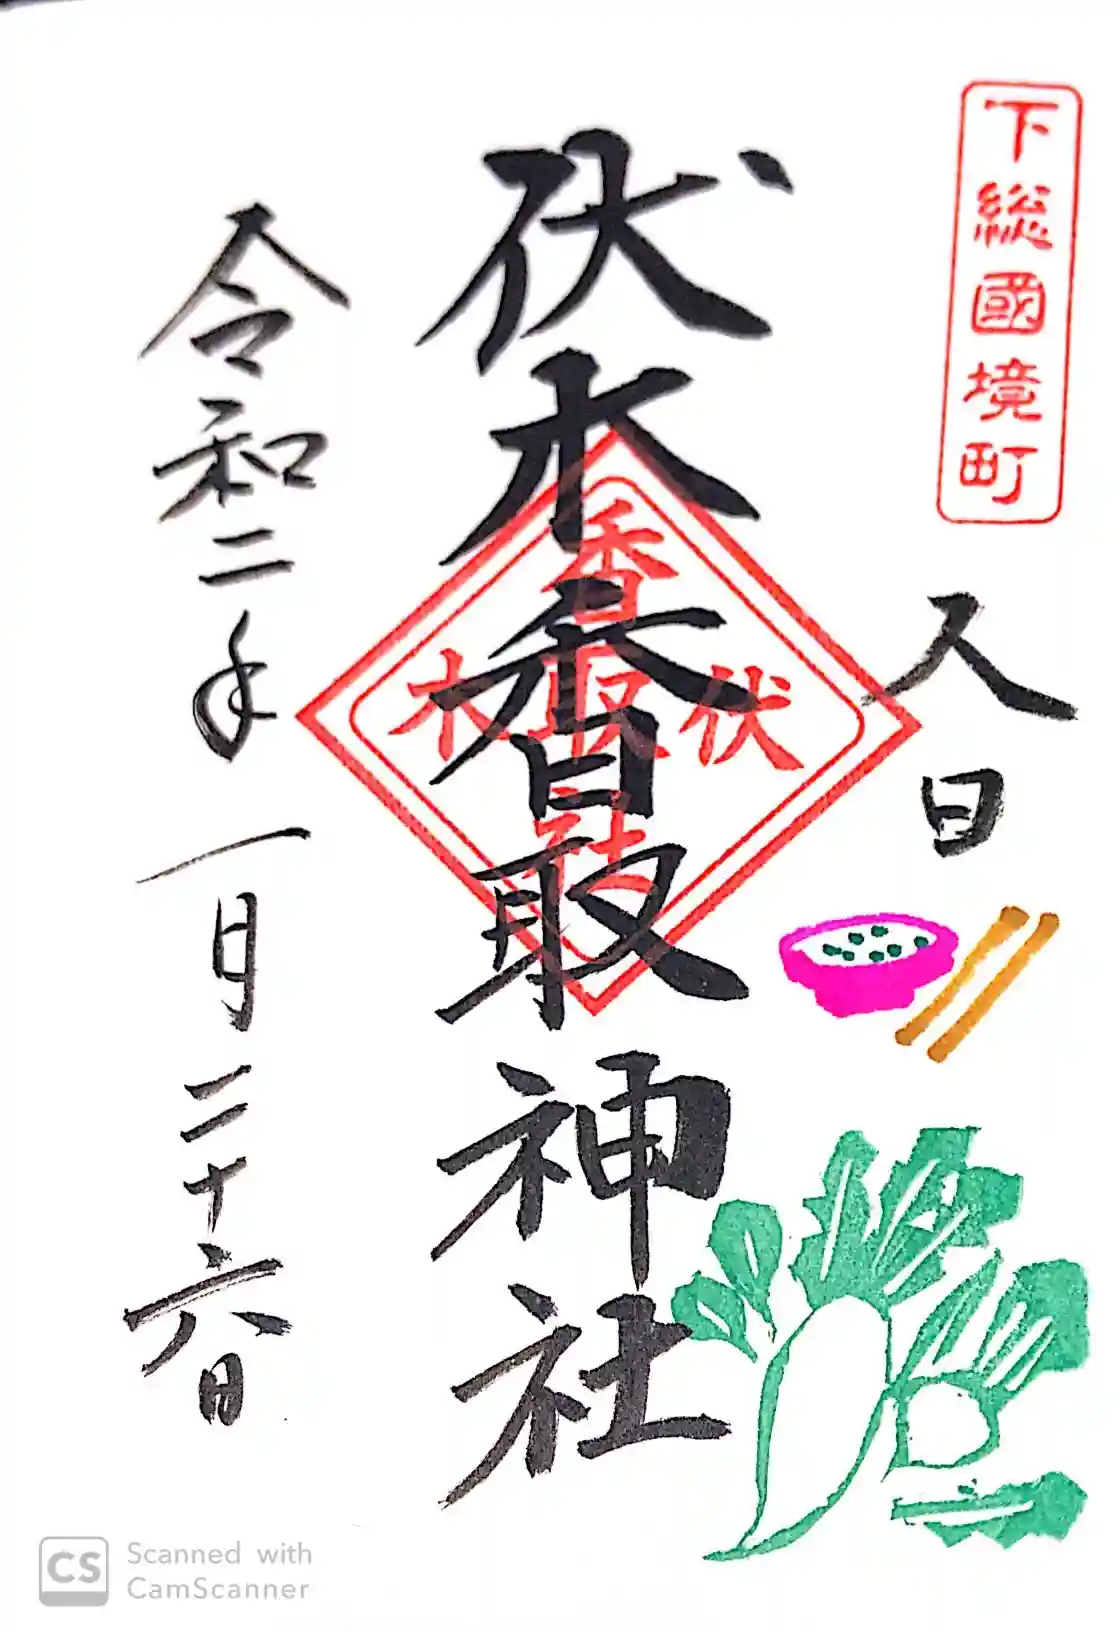 下総國境町
人日
伏木香取神社
伏木
香取社
令和二年一月二十六日
CS
Scanned with
CamScanner